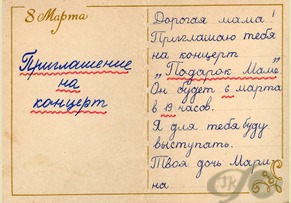 8 Марта
Приглашение
на
концерт
Дорогая мама!
Приглашаю тебя
на концерт
„Подарок Маме"
Он будет 6 марта
в 13 часов.
Я для тебя буду
выступать.
Твоя дочь Мари-
на